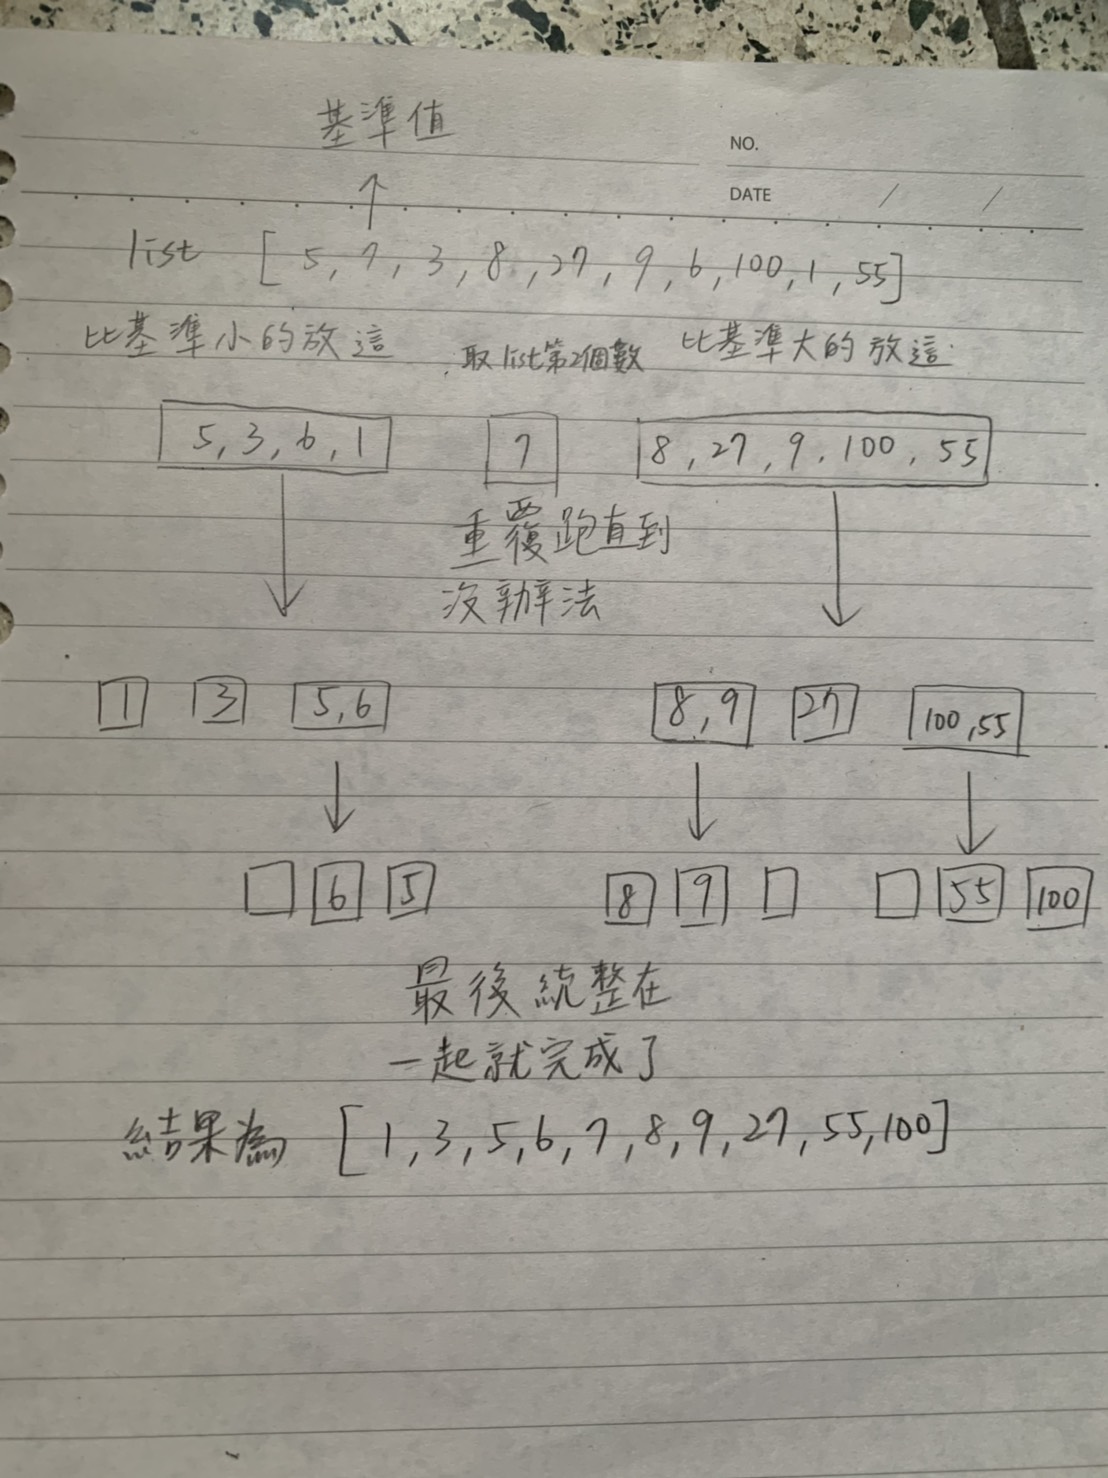 基準值
NO.
DATE / /
↑
list [5,7,3,8,27,9,6,100,1,55]
比基準小的放這 取list第2個數 比基準大的放這
5,3,6,1 7 8,27,9,100,55
重覆跑直到
沒辦法
1 3 5,6 8,9 27 100,55
6 5 8 9 55 100
最後統整在
一起就完成了
結果為 [1,3,5,6,7,8,9,27,55,100]